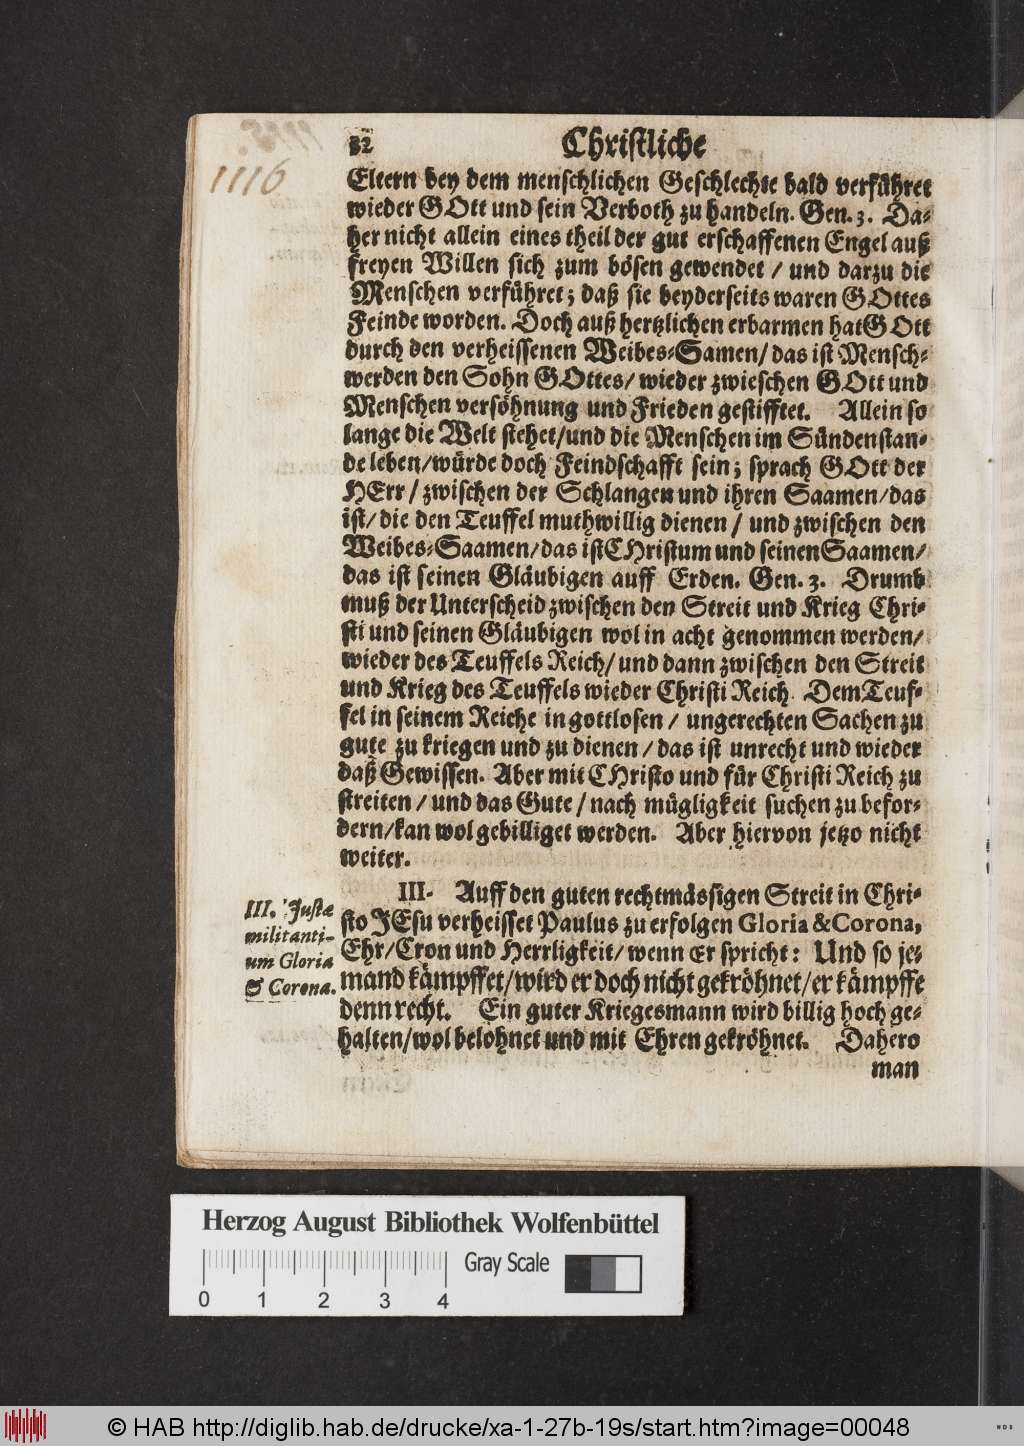 1116
32 Christliche
Eltern bey dem menschlichen Geschlechte bald verführet
wieder GOtt und sein Verboth zu handeln. Gen. 3. Da-
her nicht allein eines theil der gut erschaffenen Engel auß
freyen Willen sich zum bösen gewendet / und darzu die
Menschen verführet; daß sie beyderseits waren GOttes
Feinde worden. Doch auß hertzlichen erbarmen hat GOtt
durch den verheissenen Weibes-Samen/ das ist Mensch-
werden den Sohn GOttes/ wieder zwieschen GOtt und
Menschen versöhnung und Frieden gestifftet. Allein so
lange die Welt stehet/und die Menschen im Sündenstan-
de leben/würde doch Feindschafft sein; sprach GOtt der
HErr / zwischen der Schlangen und ihren Saamen/das
ist/ die den Teuffel muthwillig dienen / und zwischen den
Weibes-Saamen/das ist CHristum und seinen Saamen/
das ist seinen Gläubigen auff Erden. Gen. 3. Drumb
muß der Unterscheid zwischen den Streit und Krieg Chri-
sti und seinen Gläubigen wol in acht genommen werden/
wieder des Teuffels Reich/ und dann zwischen den Streit
und Krieg des Teuffels wieder Christi Reich. Dem Teuf-
fel in seinem Reiche in gottlosen / ungerechten Sachen zu
gute zu kriegen und zu dienen / das ist unrecht und wieder
daß Gewissen. Aber mit CHristo und für Christi Reich zu
streiten / und das Gute / nach mügligkeit suchen zu befor-
dern/kan wol gebilliget werden. Aber hiervon jetzo nicht
weiter.
III. Auff den guten rechtmässigen Streit in Chri-
sto JEsu verheisset Paulus zu erfolgen Gloria & Corona,
Ehr/Cron und Herrligkeit/ wenn Er spricht: Und so je-
mand kämpffet/wird er doch nicht gekröhnet/er kämpffe
denn recht. Ein guter Kriegesmann wird billig hoch ge-
halten/wol belohnet und mit Ehren gekröhnet. Dahero
man
III. Justæ
militanti-
um Gloria
& Corona.
Herzog August Bibliothek Wolfenbüttel
Gray Scale
0 1 2 3 4
© HAB http://diglib.hab.de/drucke/xa-1-27b-19s/start.htm?image=00048